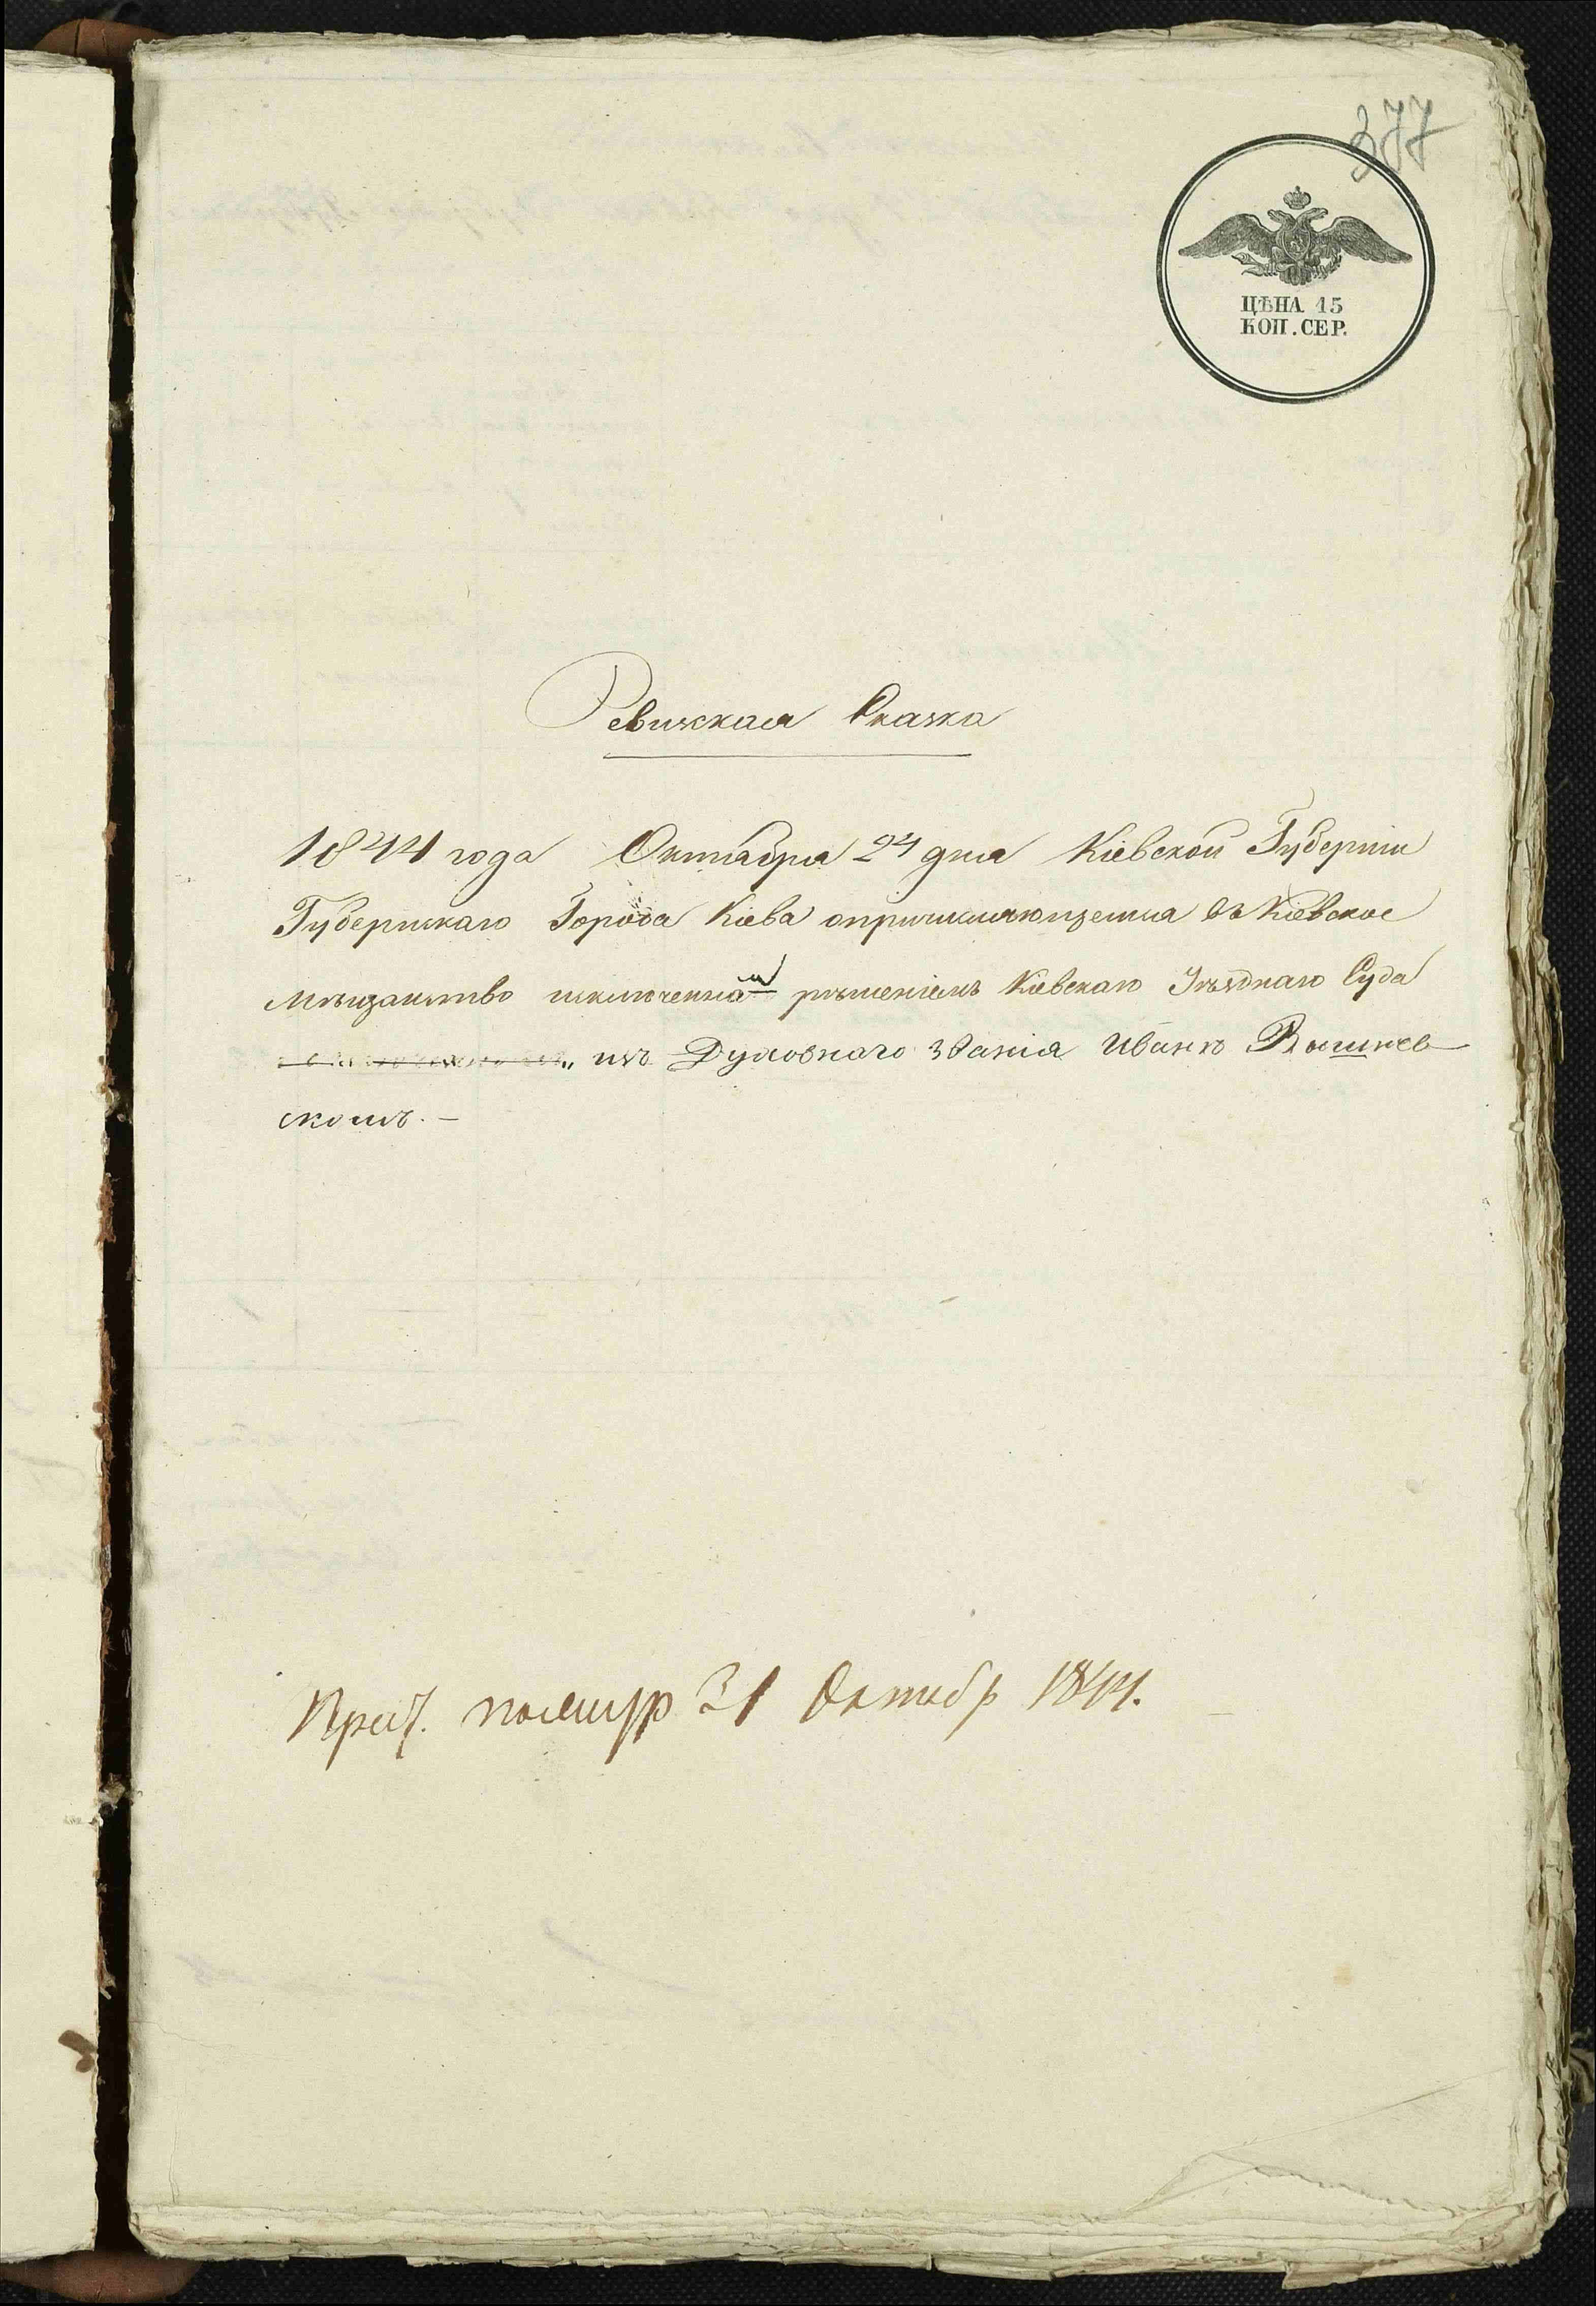 377
ЦѢНА 15
КОП. СЕР.
Ревижская Сказка
1844 года Октября 24 дня Кіевской Губерніи
Губернскаго Города Кіева опричисляющемся въ Кіевское
мѣщанство исключенномъ рѣшеніемъ Кіевскаго Уѣзднаго Суда
изъ Духовнаго званія Иванѣ Вышнев
скомъ. —
31 Октябр 1844.